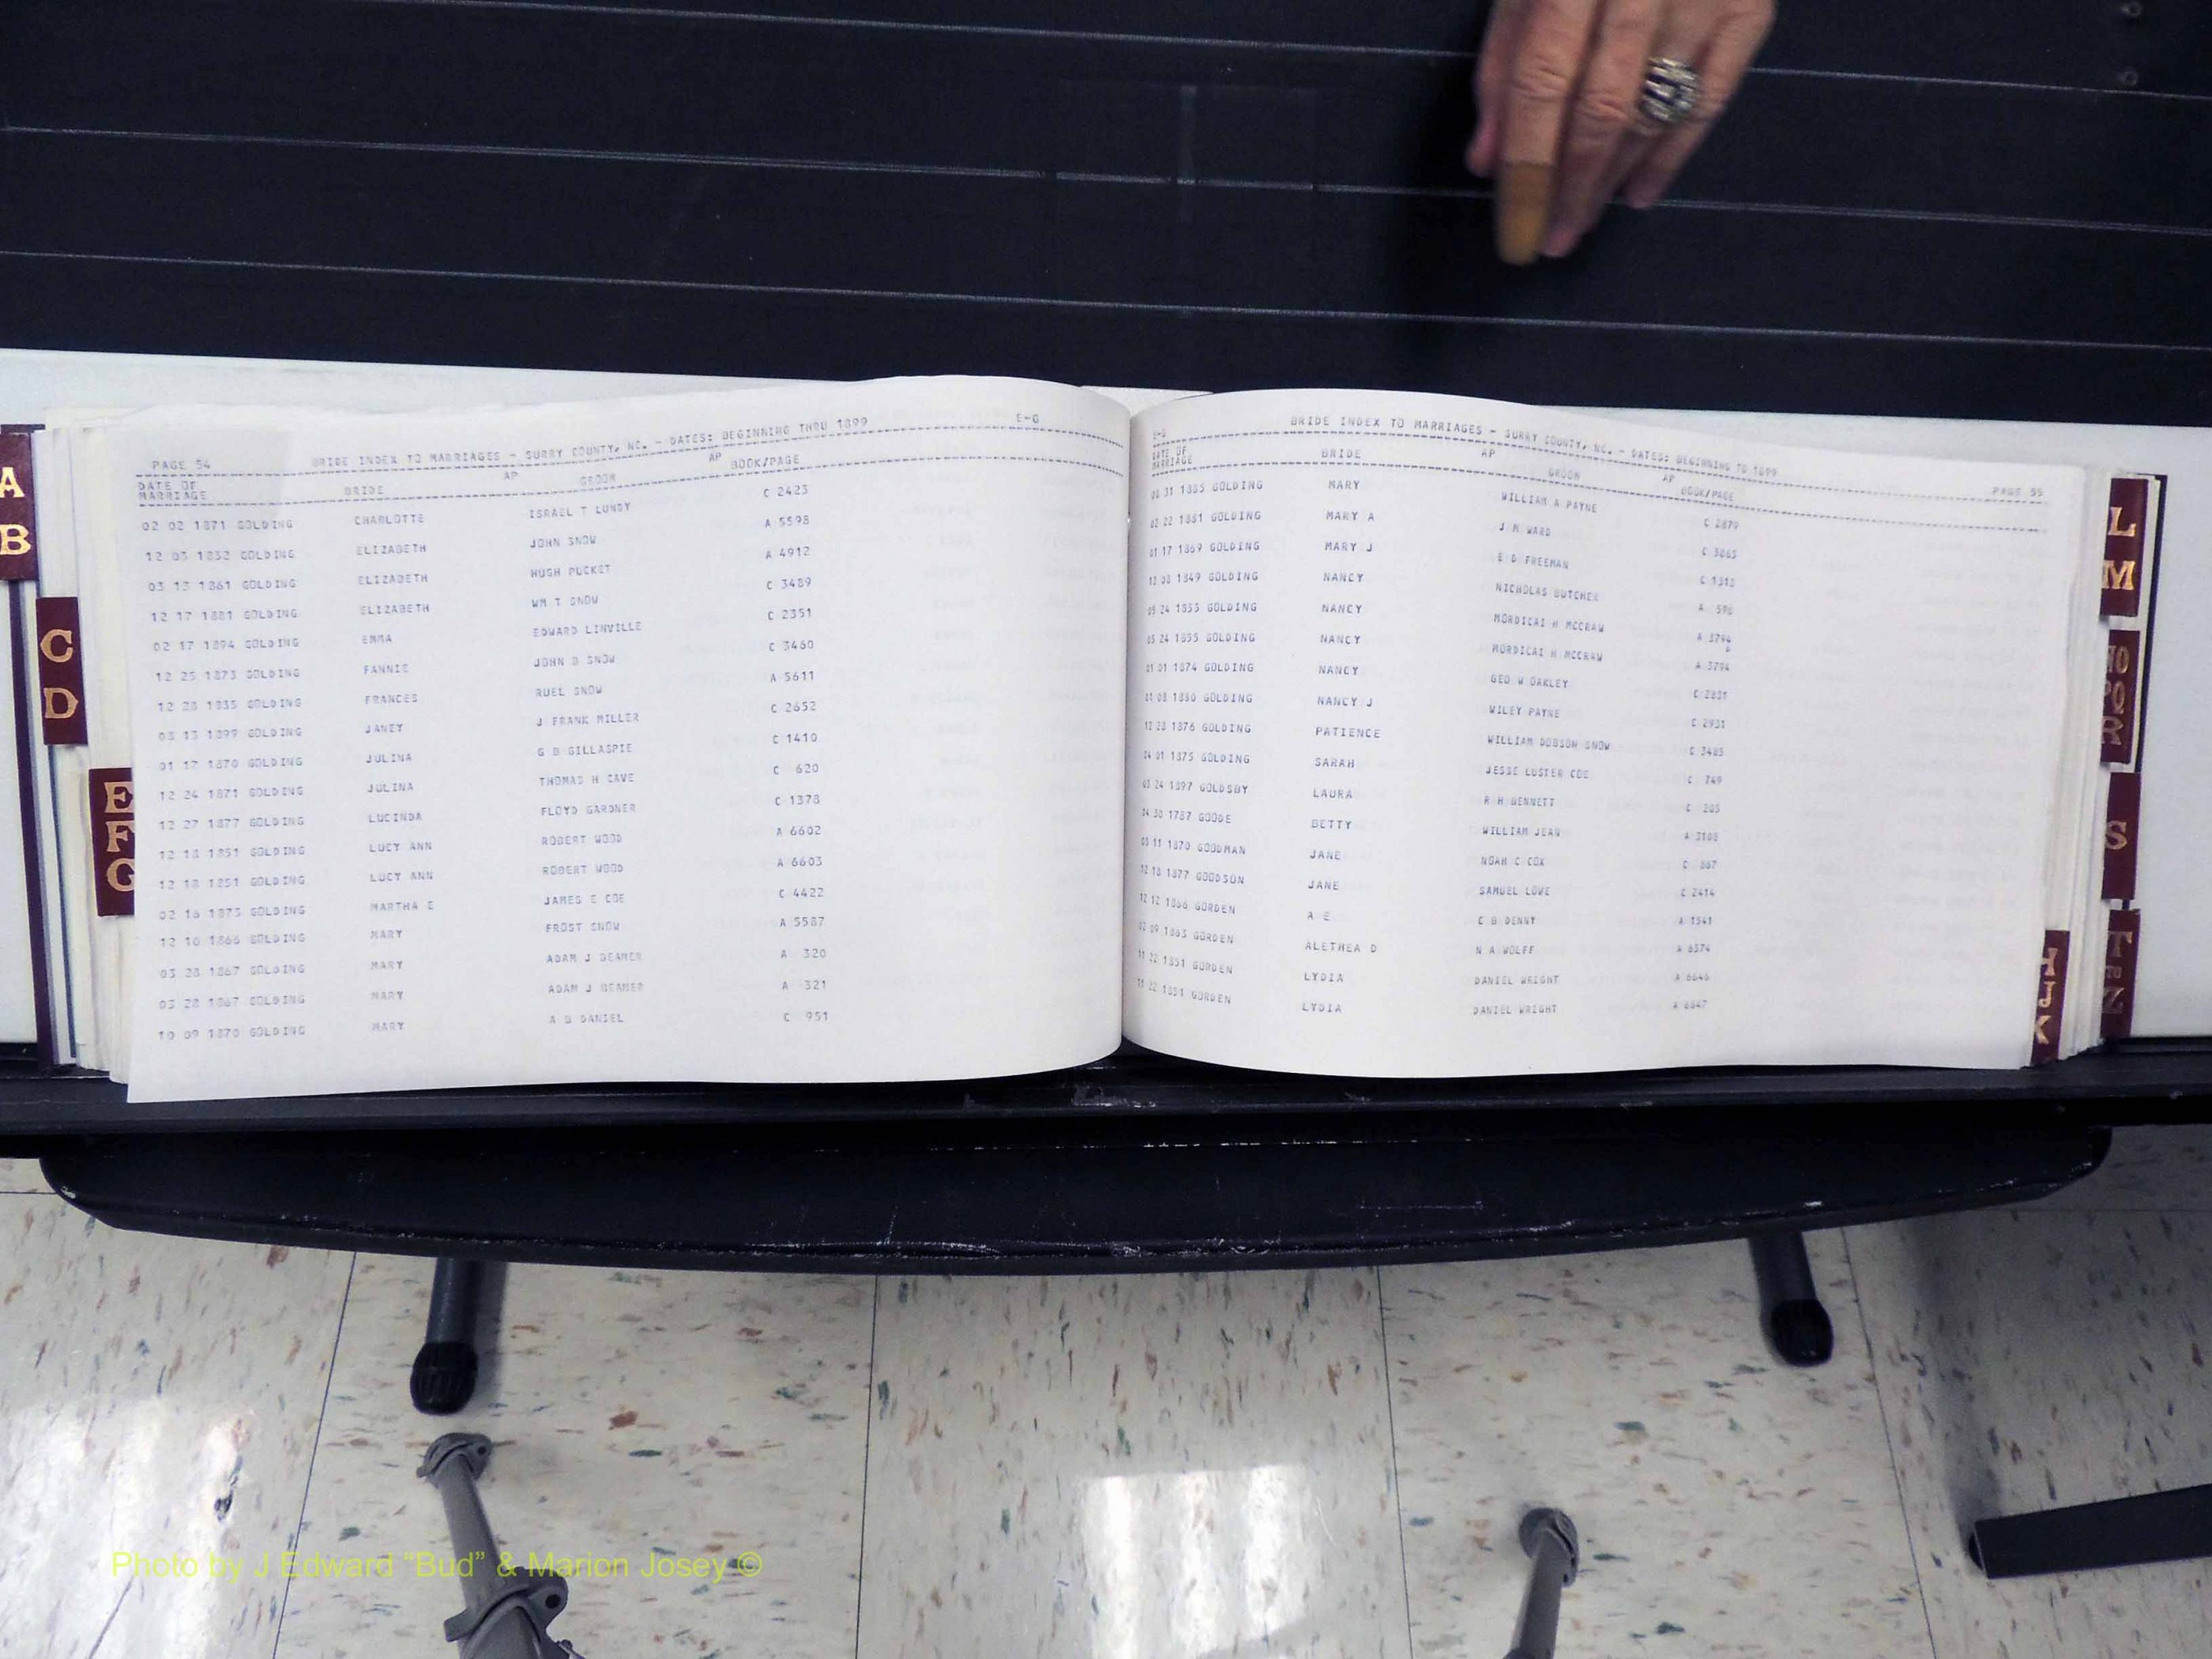 A
B
C
D
E
F
G
PAGE 54 BRIDE INDEX TO MARRIAGES - SURRY COUNTY, NC. - DATES: BEGINNING THRU 1899 E-G
DATE OF MARRIAGE BRIDE AP GROOM AP BOOK/PAGE
02 02 1871 GOLDING CHARLOTTE ISRAEL T LUNDY C 2423
12 03 1852 GOLDING ELIZABETH JOHN SNOW A 5598
03 13 1861 GOLDING ELIZABETH HUGH PUCKET A 4912
12 17 1881 GOLDING ELIZABETH WM T SNOW C 3489
02 17 1894 GOLDING EMMA EDWARD LINVILLE C 2351
12 25 1873 GOLDING FANNIE JOHN B SNOW C 3460
12 28 1835 GOLDING FRANCES RUEL SNOW A 5611
08 13 1899 GOLDING JANEY J FRANK MILLER C 2652
01 17 1870 GOLDING JULINA G B GILLASPIE C 1410
12 24 1871 GOLDING JULINA THOMAS H CAVE C 620
12 27 1877 GOLDING LUCINDA FLOYD GARDNER C 1378
12 18 1851 GOLDING LUCY ANN ROBERT WOOD A 6602
12 18 1851 GOLDING LUCY ANN ROBERT WOOD A 6603
02 16 1873 GOLDING MARTHA E JAMES E COE C 4422
12 10 1866 GOLDING MARY FROST SNOW A 5587
03 28 1867 GOLDING MARY ADAM J BEAMER A 320
03 28 1867 GOLDING MARY ADAM J BEAMER A 321
10 09 1870 GOLDING MARY A B DANIEL C 951
E-G BRIDE INDEX TO MARRIAGES - SURRY COUNTY, NC. - DATES: BEGINNING TO 1899 PAGE 55
DATE OF MARRIAGE BRIDE AP GROOM AP BOOK/PAGE
08 31 1885 GOLDING MARY WILLIAM A PAYNE C 2879
02 22 1881 GOLDING MARY A J M WARD C 3865
01 17 1869 GOLDING MARY J E D FREEMAN C 1313
12 08 1849 GOLDING NANCY NICHOLAS BUTCHER A 596
05 24 1855 GOLDING NANCY MORDICAI H MCCRAW A 3794
05 24 1855 GOLDING NANCY MORDICAI H MCCRAW A 3794
01 01 1874 GOLDING NANCY GEO W OAKLEY C 2831
01 08 1880 GOLDING NANCY J WILEY PAYNE C 2931
12 28 1876 GOLDING PATIENCE WILLIAM DOBSON SNOW C 3485
04 01 1875 GOLDING SARAH JESSE LUSTER COE C 749
03 24 1897 GOLDSBY LAURA R H BENNETT C 205
04 30 1787 GOODE BETTY WILLIAM JEAN A 3108
08 11 1870 GOODMAN JANE NOAH C COX C 867
12 18 1877 GOODSON JANE SAMUEL LOWE C 2414
12 12 1866 GORDEN A E C B DENNY A 1541
02 09 1863 GORDEN ALETHEA D N A WOLFF A 6574
11 22 1851 GORDEN LYDIA DANIEL WRIGHT A 6646
11 22 1851 GORDEN LYDIA DANIEL WRIGHT A 6647
L
M
S
Photo by J Edward “Bud” & Marion Josey ©